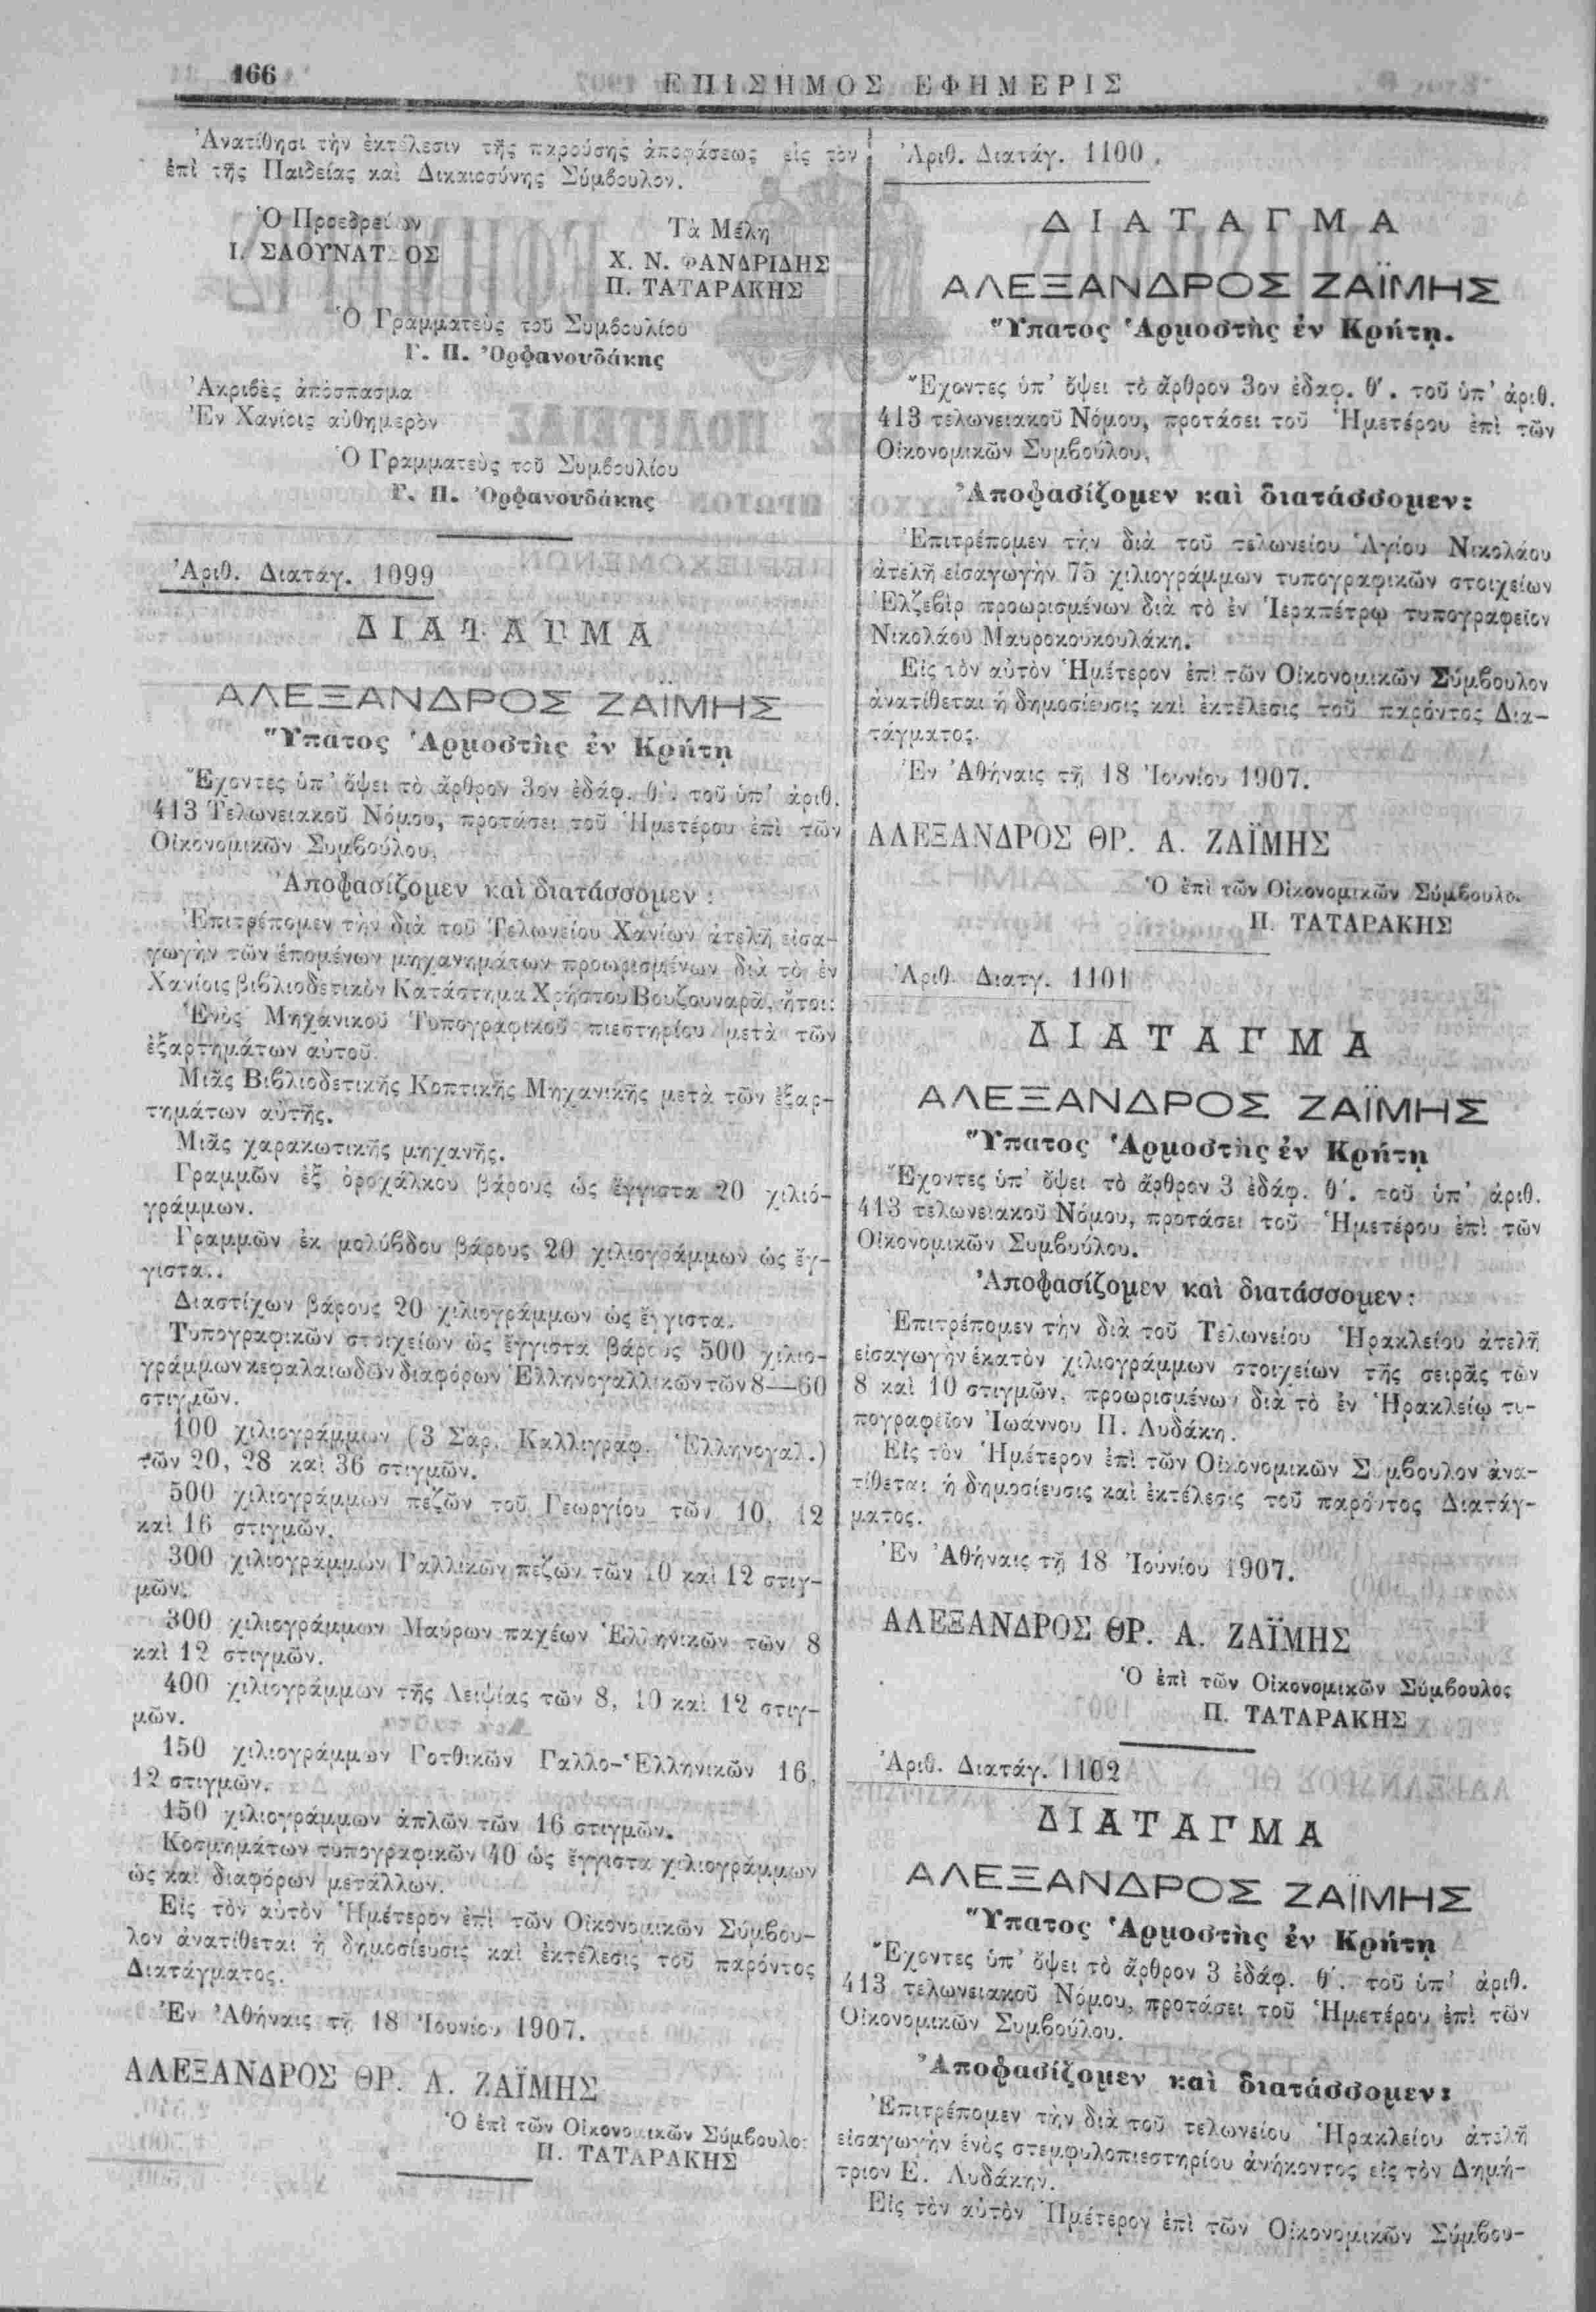 166
ΕΠΙΣΗΜΟΣ ΕΦΗΜΕΡΙΣ
Ἀνατίθησι τὴν ἐκτέλεσιν τῆς παρούσης ἀποφάσεως εἰς τὸν
ἐπὶ τῆς Παιδείας καὶ Δικαιοσύνης Σύμβουλον.
Ὁ Προεδρεύων
Ι. ΣΑΟΥΝΑΤΣΟΣ
Τὰ Μέλη
Χ. Ν. ΦΑΝΔΡΙΔΗΣ
Π. ΤΑΤΑΡΑΚΗΣ
Ὁ Γραμματεὺς τοῦ Συμβουλίου
Γ. Π. Ὀρφανουδάκης
Ἀκριβὲς ἀπόσπασμα
Ἐν Χανίοις αὐθημερὸν
Ὁ Γραμματεὺς τοῦ Συμβουλίου
Γ. Π. Ὀρφανουδάκης
Ἀριθ. Διατάγ. 1099
ΔΙΑΤΑΓΜΑ
ΑΛΕΞΑΝΔΡΟΣ ΖΑΪΜΗΣ
Ὕπατος Ἁρμοστὴς ἐν Κρήτῃ
Ἔχοντες ὑπ' ὄψει τὸ ἄρθρον 3ον ἐδάφ. θ'. τοῦ ὑπ' ἀριθ.
413 Τελωνειακοῦ Νόμου, προτάσει τοῦ Ἡμετέρου ἐπὶ τῶν
Οἰκονομικῶν Συμβούλου,
Ἀποφασίζομεν καὶ διατάσσομεν :
Ἐπιτρέπομεν τὴν διὰ τοῦ Τελωνείου Χανίων ἀτελῆ εἰσα-
γωγὴν τῶν ἑπομένων μηχανημάτων προωρισμένων διὰ τὸ ἐν
Χανίοις βιβλιοδετικὸν Κατάστημα Χρήστου Βουζουναρᾶ, ἤτοι:
Ἑνὸς Μηχανικοῦ Τυπογραφικοῦ πιεστηρίου μετὰ τῶν
ἐξαρτημάτων αὐτοῦ.
Μιᾶς Βιβλιοδετικῆς Κοπτικῆς Μηχανικῆς μετὰ τῶν ἐξαρ-
τημάτων αὐτῆς.
Μιᾶς χαρακωτικῆς μηχανῆς.
Γραμμῶν ἐξ ὀροχάλκου βάρους ὡς ἔγγιστα 20 χιλιό-
γράμμων.
Γραμμῶν ἐκ μολύβδου βάρους 20 χιλιογράμμων ὡς ἔγ-
γιστα..
Διαστίχων βάρους 20 χιλιογράμμων ὡς ἔγγιστα.
Τυπογραφικῶν στοιχείων ὡς ἔγγιστα βάρους 500 χιλιο-
γράμμων κεφαλαιωδῶν διαφόρων Ἑλληνογαλλικῶν τῶν 8—60
στιγμῶν.
100 χιλιογράμμων (3 Σαρ. Καλλιγραφ. Ἑλληνογαλ.)
τῶν 20, 28 καὶ 36 στιγμῶν.
500 χιλιογράμμων πεζῶν τοῦ Γεωργίου τῶν 10, 12
καὶ 16 στιγμῶν.
300 χιλιογράμμων Γαλλικῶν πεζῶν τῶν 10 καὶ 12 στιγ-
μῶν.
300 χιλιογράμμων Μαύρων παχέων Ἑλληνικῶν τῶν 8
καὶ 12 στιγμῶν.
400 χιλιογράμμων τῆς Λειψίας τῶν 8, 10 καὶ 12 στιγ-
μῶν.
150 χιλιογράμμων Γοτθικῶν Γαλλο-Ἑλληνικῶν 16,
12 στιγμῶν.
150 χιλιογράμμων ἁπλῶν τῶν 16 στιγμῶν.
Κοσμημάτων τυπογραφικῶν 40 ὡς ἔγγιστα χιλιογράμμων
ὡς καὶ διαφόρων μετάλλων.
Εἰς τὸν αὐτὸν Ἡμέτερον ἐπὶ τῶν Οἰκονομικῶν Σύμβου-
λον ἀνατίθεται ἡ δημοσίευσις καὶ ἐκτέλεσις τοῦ παρόντος
Διατάγματος.
Ἐν Ἀθήναις τῇ 18 Ἰουνίου 1907.
ΑΛΕΞΑΝΔΡΟΣ ΘΡ. Α. ΖΑΪΜΗΣ
Ὁ ἐπὶ τῶν Οἰκονομικῶν Σύμβουλος
Π. ΤΑΤΑΡΑΚΗΣ
Ἀριθ. Διατάγ. 1100.
ΔΙΑΤΑΓΜΑ
ΑΛΕΞΑΝΔΡΟΣ ΖΑΪΜΗΣ
Ὕπατος Ἁρμοστὴς ἐν Κρήτῃ.
Ἔχοντες ὑπ' ὄψει τὸ ἄρθρον 3ον ἐδαφ. θ'. τοῦ ὑπ' ἀριθ.
413 τελωνειακοῦ Νόμου, προτάσει τοῦ Ἡμετέρου ἐπὶ τῶν
Οἰκονομικῶν Συμβούλου,
Ἀποφασίζομεν καὶ διατάσσομεν:
Ἐπιτρέπομεν τὴν διὰ τοῦ τελωνείου Ἁγίου Νικολάου
ἀτελῆ εἰσαγωγὴν 75 χιλιογράμμων τυπογραφικῶν στοιχείων
Ἐλζεβὶρ προωρισμένων διὰ τὸ ἐν Ἱεραπέτρῳ τυπογραφεῖον
Νικολάου Μαυροκουκουλάκη.
Εἰς τὸν αὐτὸν Ἡμέτερον ἐπὶ τῶν Οἰκονομικῶν Σύμβουλον
ἀνατίθεται ἡ δημοσίευσις καὶ ἐκτέλεσις τοῦ παρόντος Δια-
τάγματος.
Ἐν Ἀθήναις τῇ 18 Ἰουνίου 1907.
ΑΛΕΞΑΝΔΡΟΣ ΘΡ. Α. ΖΑΪΜΗΣ
Ὁ ἐπὶ τῶν Οἰκονομικῶν Σύμβουλος
Π. ΤΑΤΑΡΑΚΗΣ
Ἀριθ. Διατγ. 1101
ΔΙΑΤΑΓΜΑ
ΑΛΕΞΑΝΔΡΟΣ ΖΑΪΜΗΣ
Ὕπατος Ἁρμοστὴς ἐν Κρήτῃ
Ἔχοντες ὑπ' ὄψει τὸ ἄρθρον 3 ἐδάφ. θ'. τοῦ ὑπ' ἀριθ.
413 τελωνειακοῦ Νόμου, προτάσει τοῦ Ἡμετέρου ἐπὶ τῶν
Οἰκονομικῶν Συμβυύλου.
Ἀποφασίζομεν καὶ διατάσσομεν:
Ἐπιτρέπομεν τὴν διὰ τοῦ Τελωνείου Ἡρακλείου ἀτελῆ
εἰσαγωγὴν ἑκατὸν χιλιογράμμων στοιχείων τῆς σειρᾶς τῶν
8 καὶ 10 στιγμῶν, προωρισμένων διὰ τὸ ἐν Ἡρακλείῳ τυ-
πογραφεῖον Ἰωάννου Π. Λυδάκη.
Εἰς τὸν Ἡμέτερον ἐπὶ τῶν Οἰκονομικῶν Σύμβουλον ἀνα-
τίθεται ἡ δημοσίευσις καὶ ἐκτέλεσις τοῦ παρόντος Διατάγ-
ματος.
Ἐν Ἀθήναις τῇ 18 Ἰουνίου 1907.
ΑΛΕΞΑΝΔΡΟΣ ΘΡ. Α. ΖΑΪΜΗΣ
Ὁ ἐπὶ τῶν Οἰκονομικῶν Σύμβουλος
Π. ΤΑΤΑΡΑΚΗΣ
Ἀριθ. Διατάγ. 1102
ΔΙΑΤΑΓΜΑ
ΑΛΕΞΑΝΔΡΟΣ ΖΑΪΜΗΣ
Ὕπατος Ἁρμοστὴς ἐν Κρήτῃ
Ἔχοντες ὑπ' ὄψει τὸ ἄρθρον 3 ἐδάφ. θ'. τοῦ ὑπ' ἀριθ.
413 τελωνειακοῦ Νόμου, προτάσει τοῦ Ἡμετέρου ἐπὶ τῶν
Οἰκονομικῶν Συμβούλου.
Ἀποφασίζομεν καὶ διατάσσομεν:
Ἐπιτρέπομεν τὴν διὰ τοῦ τελωνείου Ἡρακλείου ἀτελῆ
εἰσαγωγὴν ἑνὸς στεμφυλοπιεστηρίου ἀνήκοντος εἰς τὸν Δημή-
τριον Ε. Λυδάκην.
Εἰς τὸν αὐτὸν Ἡμέτερον ἐπὶ τῶν Οἰκονομικῶν Σύμβου-